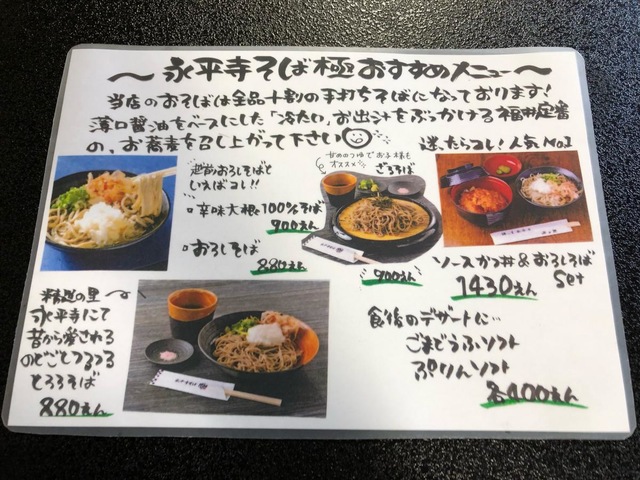 ～永平寺そば極おすすめメニュー～
当店のおそばは全品十割の手打ちそばになっております!
薄口醤油をベースにした「冷たい」お出汁をぶっかける福井定番
の、お蕎麦を召し上がって下さい
越前おろしそばと
いえばコレ!!
辛味大根100%そば
900えん
おろしそば
880えん
甘めのつゆでお子様も
オススメ
ざるそば
900えん
迷ったらコレ!人気No.1
ソースかつ丼&おろしそば
1430えん Set
精進の里
永平寺にて
昔から愛される
のどごとつるつる
とろろそば
880えん
食後のデザートに…
ごまどうふソフト
ぷりんソフト
各400えん